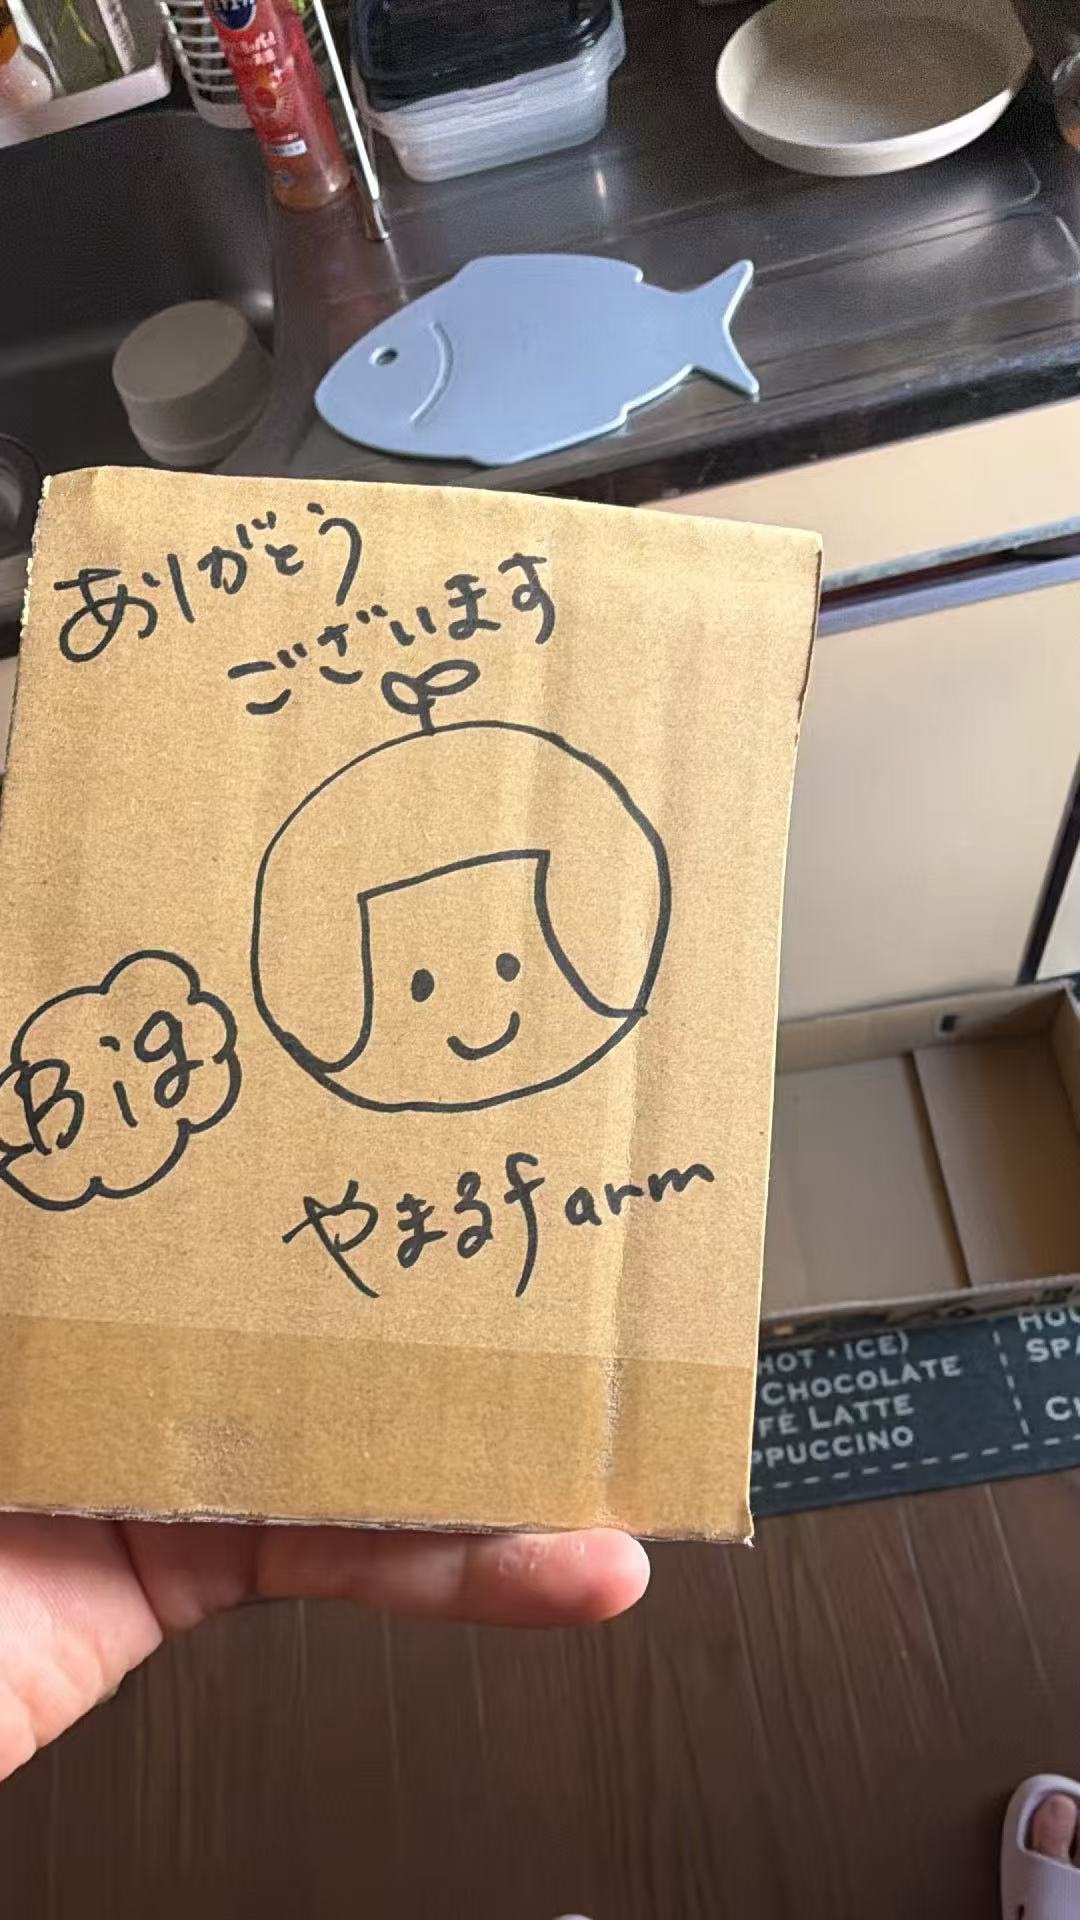 ありがとう
ございます
Big
やまるfarm
HOT・ICE)
CHOCOLATE
LATTE